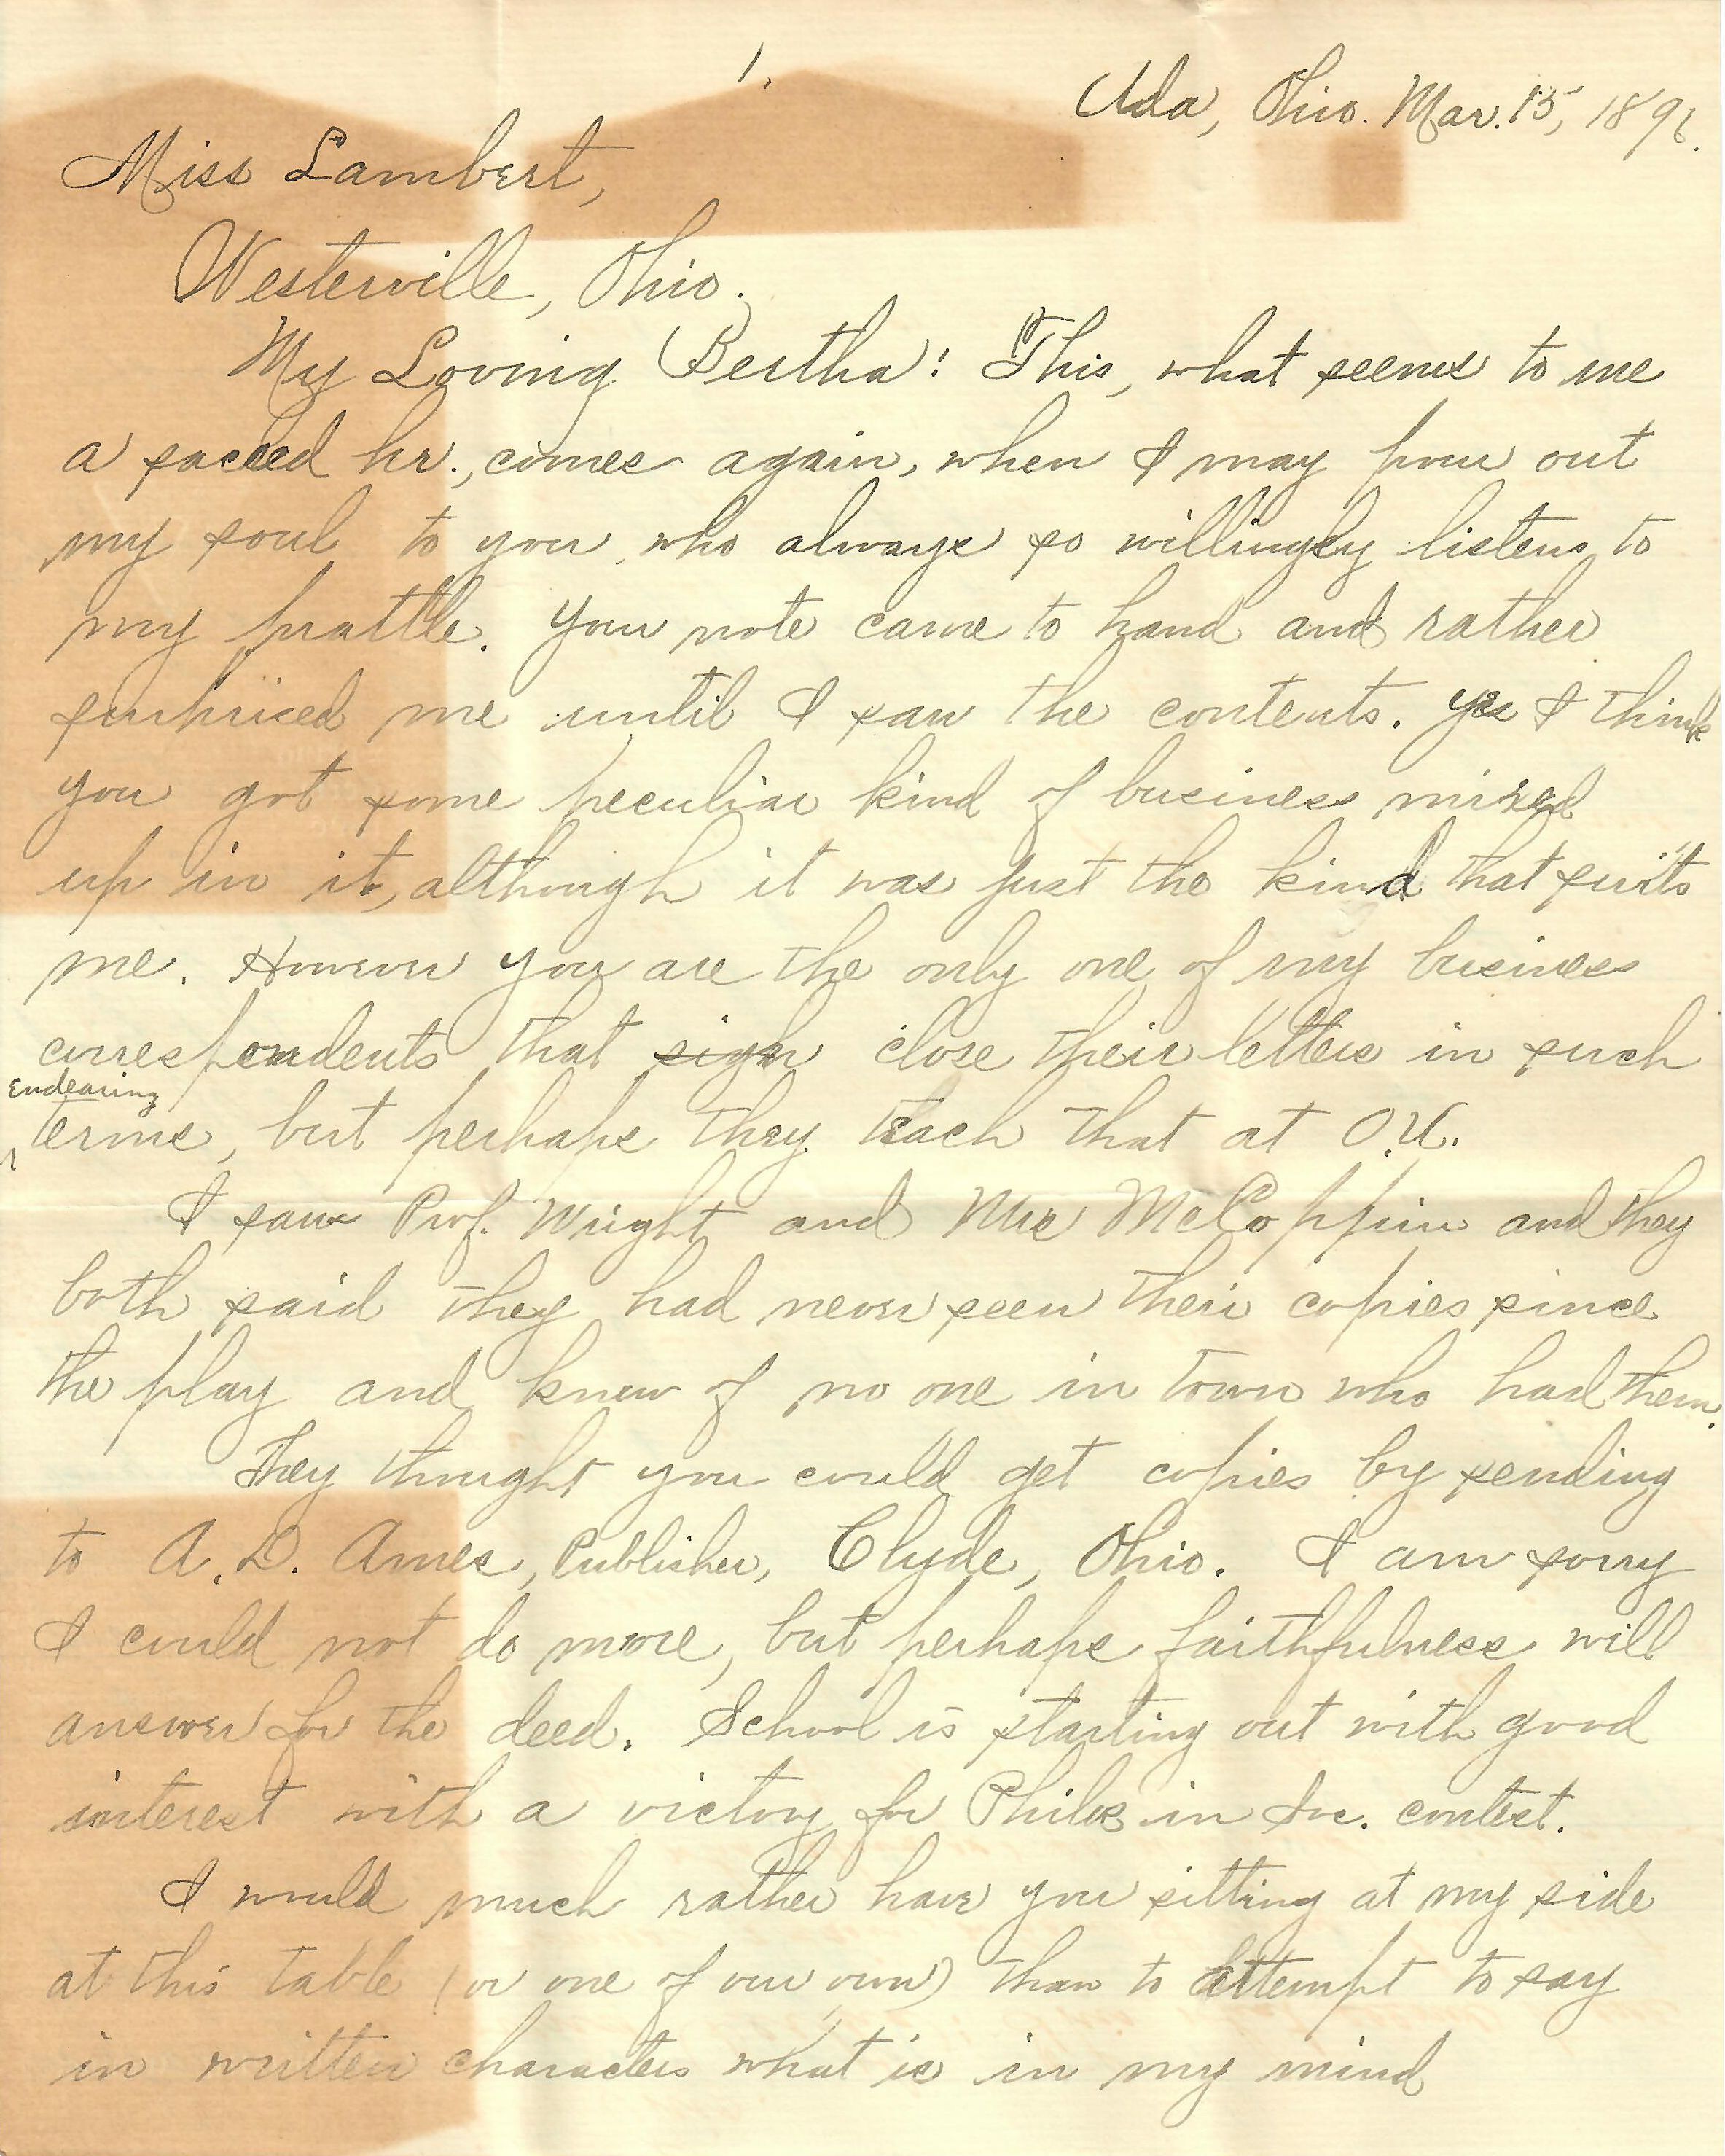 1.
Ada, Ohio. Mar. 15, 1896.
Miss Lambert,
Westerville, Ohio.
My Loving Bertha: This, what seems to me
a sacred hr., comes again, when I may pour out
my soul to you who always so willingly listens to
my prattle. Your note came to hand and rather
surprised me until I saw the contents. Yes I think
you got some peculiar kind of business mixed
up in it, although it was just the kind that suits
me. However you are the only one of my business
correspondents that sign close their letters in such
Endearing
terms, but perhaps they teach that at O.U.
I saw Prof. Wright and Mrs McCoppin and they
both said they had never seen their copies since
the play and knew of no one in town who had them.
They thought you could get copies by sending
to A. D. Ames, Publisher, Clyde, Ohio. I am sorry
I could not do more, but perhaps faithfulness will
answer for the deed. School is starting out with good
interest with a victory for Philos in Soc. contest.
I would much rather have you sitting at my side
at this table (or one of our own) than to attempt to say
in written characters what is in my mind